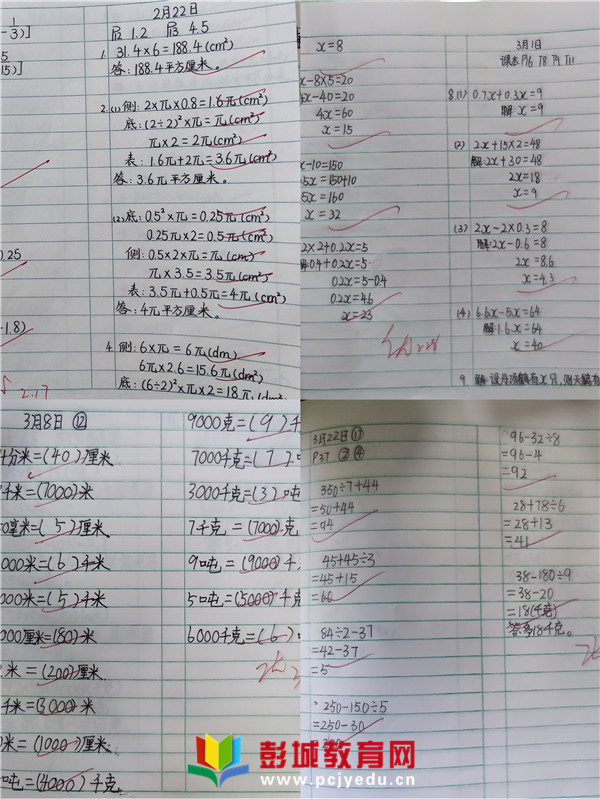 2月22日
P.1.2 P.4.5
1. 31.4×6=188.4(cm²)
答:188.4平方厘米。
2.(1)侧:2×π×0.8=1.6π(cm²)
底:(2÷2)²×π=π(cm²)
π×2=2π(cm²)
表:1.6π+2π=3.6π(cm²)
答:3.6π平方厘米。
(2)底:0.5²×π=0.25π(cm²)
0.25π×2=0.5π(cm²)
侧:0.5×2×π=π(cm)
π×3.5=3.5π(cm²)
表:3.5π+0.5π=4π(cm²)
答:4π平方厘米。
4.侧:6×π=6π(dm)
6π×2.6=15.6π(dm²)
底:(6÷2)²×π×2=18π(dm
-3)]
15)]
0.25
-1.8)
2.17
x=8
x-8×5=20
4x-40=20
4x=60
x=15
x-10=150
5x=150+10
5x=160
x=32
2×2+0.2x=5
解:0.4+0.2x=5
0.2x=5-0.4
0.2x=4.6
x=23
3月1日
课本P16 T8 T9 T11
8.(1) 0.7x+0.3x=9
解:x=9
(2) 2x+15×2=48
解:2x+30=48
2x=18
x=9
(3) 2x-2×0.3=8
解:2x-0.6=8
2x=8.6
x=4.3
(4) 6.6x-5x=64
解:1.6x=64
x=40
9. 解:设丹顶鹤有x只,则天鹅有
3月8日 ⑫
分米=(40)厘米
千米=(7000)米
0毫米=(5)厘米
000米=(6)千米
000米=(5)千米
000厘米=(80)米
米=(200)厘米
千米=(3000)米
米=(1000)厘米
吨=(4000)千克
9000克=(9)千
7000千克=(7)吨
3000千克=(3)吨
7千克=(7000)克
9吨=(9000)千
5吨=(5000)千克
6000千克=(6)
3月22日 ⑰
P37 ③ ④
350÷7+44
=50+44
=94
45+45÷3
=45+15
=60
84÷2-37
=42-37
=5
250-150÷5
=250-30
96-32÷8
=96-4
=92
28+78÷6
=28+13
=41
38-180÷9
=38-20
=18(千克)
答:多18千克。
彭城教育网
www.pcjyedu.cn